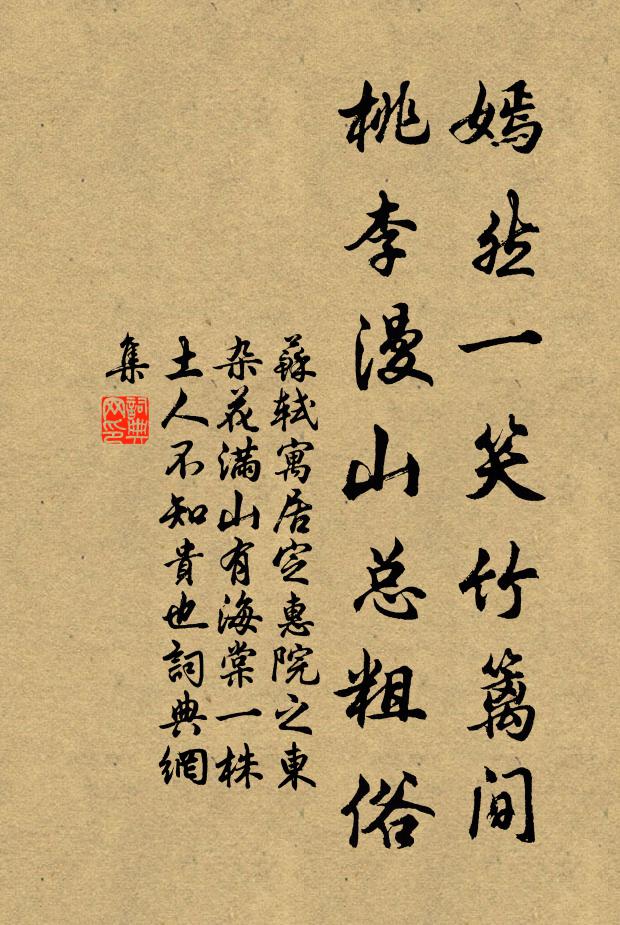 嫣然一笑竹篱间
桃李漫山总粗俗
蘇軾寓居定惠院之東
杂花满山有海棠一株
土人不知貴也詞典網
集
詞典网印